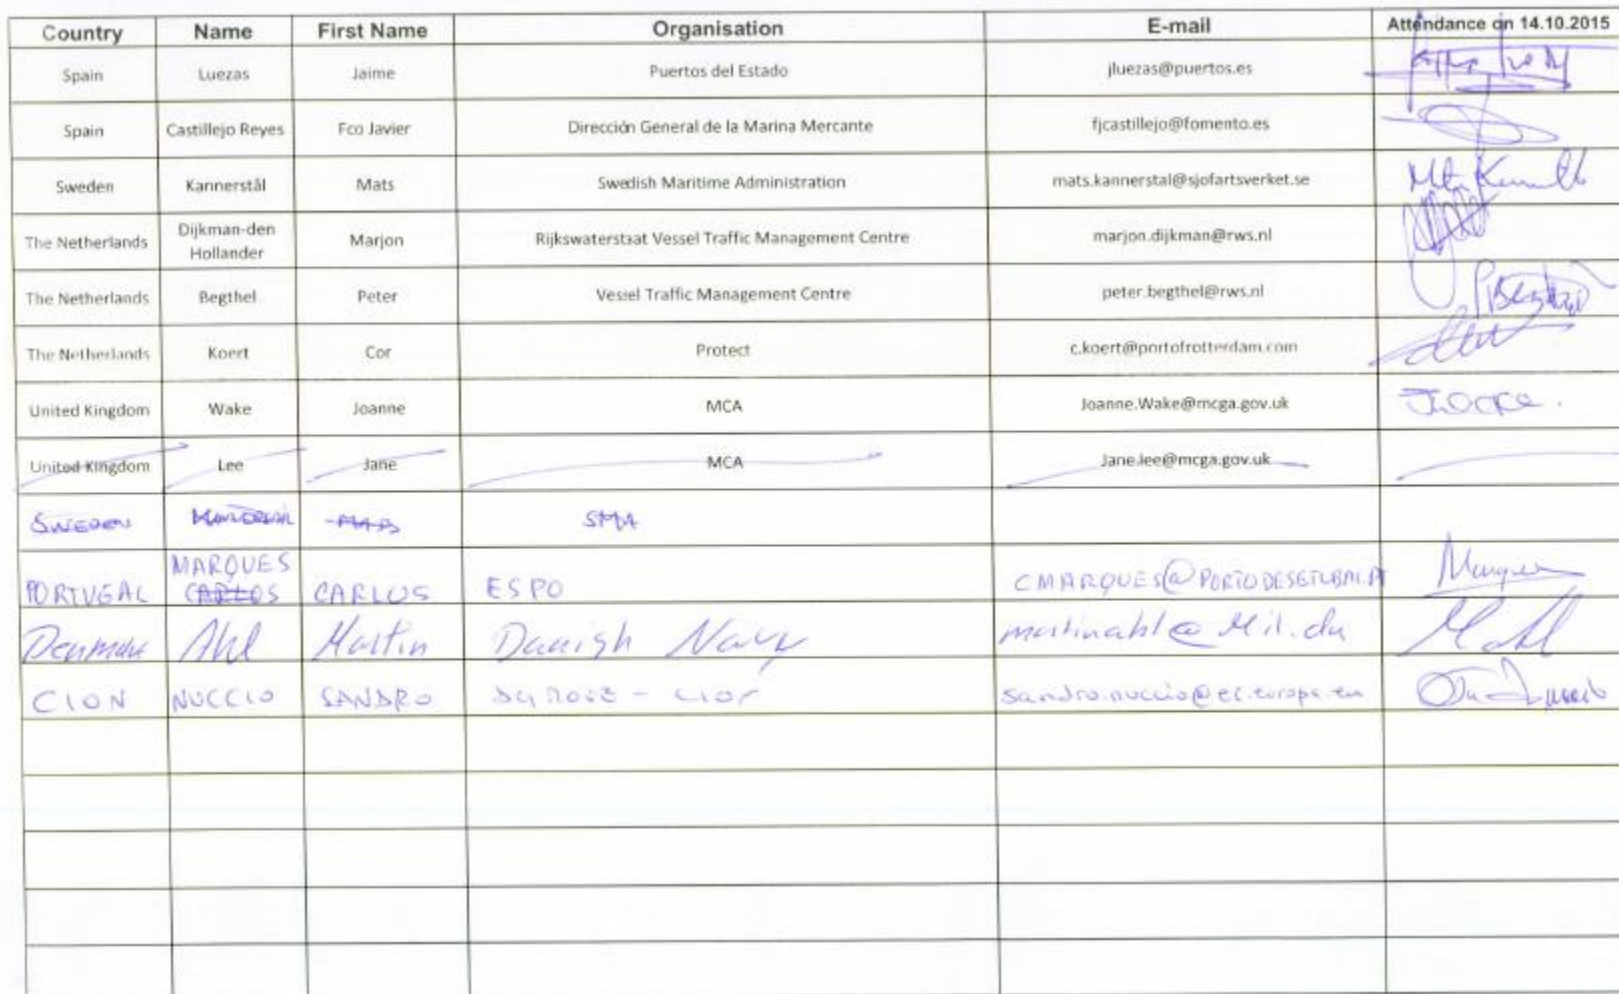 Country Name First Name Organisation E-mail Attendance on 14.10.2015
Spain Luezas Jaime Puertos del Estado jluezas@puertos.es
Spain Castillejo Reyes Fco Javier Dirección General de la Marina Mercante fjcastillejo@fomento.es
Sweden Kannerstål Mats Swedish Maritime Administration mats.kannerstal@sjofartsverket.se
The Netherlands Dijkman-den Hollander Marjon Rijkswaterstaat Vessel Traffic Management Centre marjon.dijkman@rws.nl
The Netherlands Begthel Peter Vessel Traffic Management Centre peter.begthel@rws.nl
The Netherlands Koert Cor Protect c.koert@portofrotterdam.com
United Kingdom Wake Joanne MCA Joanne.Wake@mcga.gov.uk
United Kingdom Lee Jane MCA Jane.lee@mcga.gov.uk
SWEDEN SMA
MARQUES
PORTUGAL CARLOS CARLOS ESPO CMARQUES@PORTODESETUBAL.PT Marques
Denmark Ahl Martin Danish Navy martinahl@mil.dk
CION NUCCIO SANDRO sandro.nuccio@ec.europa.eu